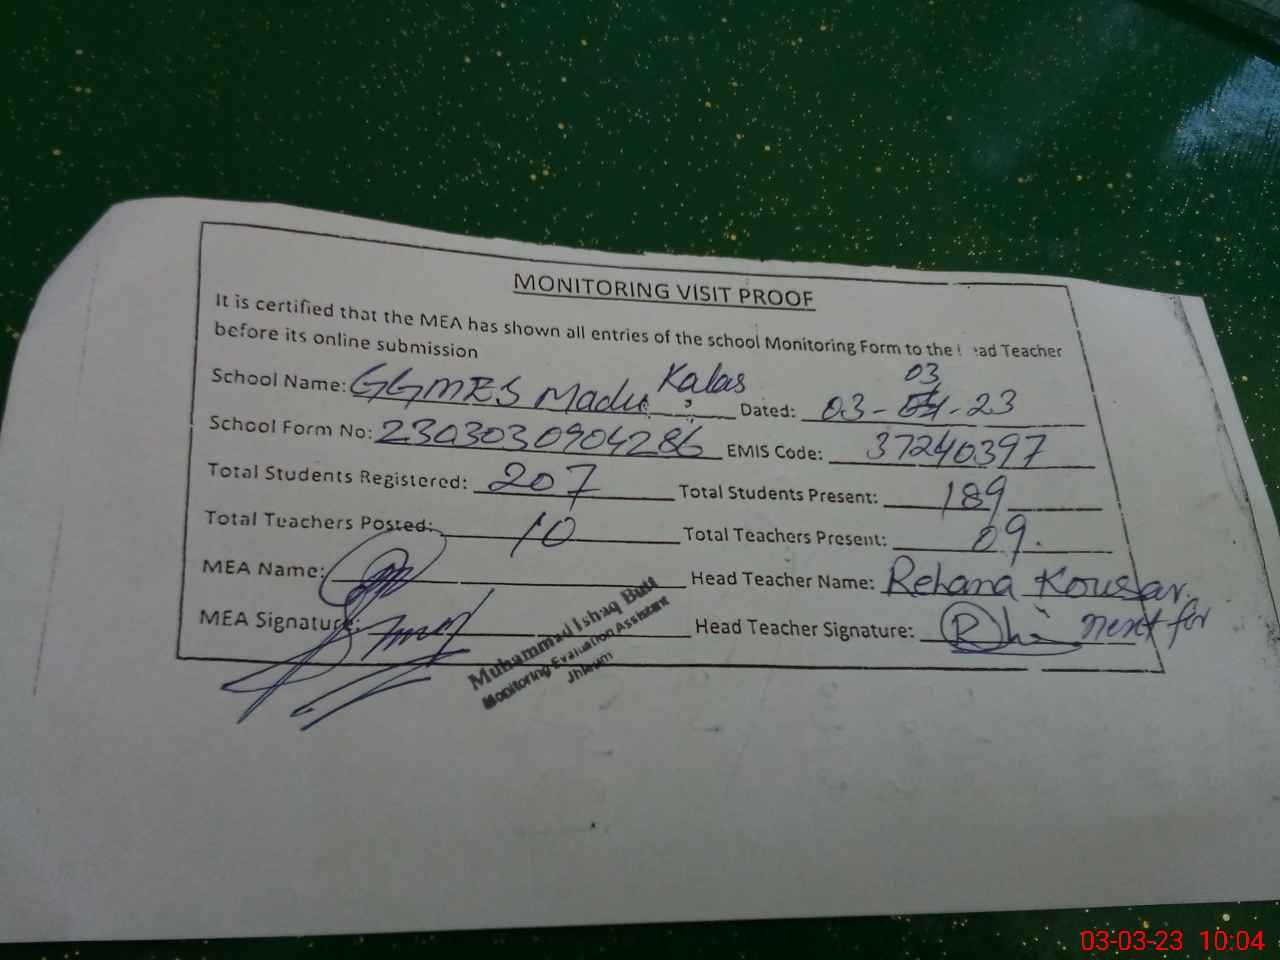 MONITORING VISIT PROOF
It is certified that the MEA has shown all entries of the school Monitoring Form to the ead Teacher
before its online submission
School Name: GGMES Madu Kalas Dated: 03-03-23
School Form No: 2303030904286 EMIS Code: 37240397
Total Students Registered: 207 Total Students Present: 189
Total Teachers Posted: 10 Total Teachers Present: 09.
MEA Name: Head Teacher Name: Rehana Kousar.
MEA Signature: Head Teacher Signature: next for
Muhammad Ishaq Butt
Monitoring Evaluation Assistant
Jhleum
03-03-23 10:04